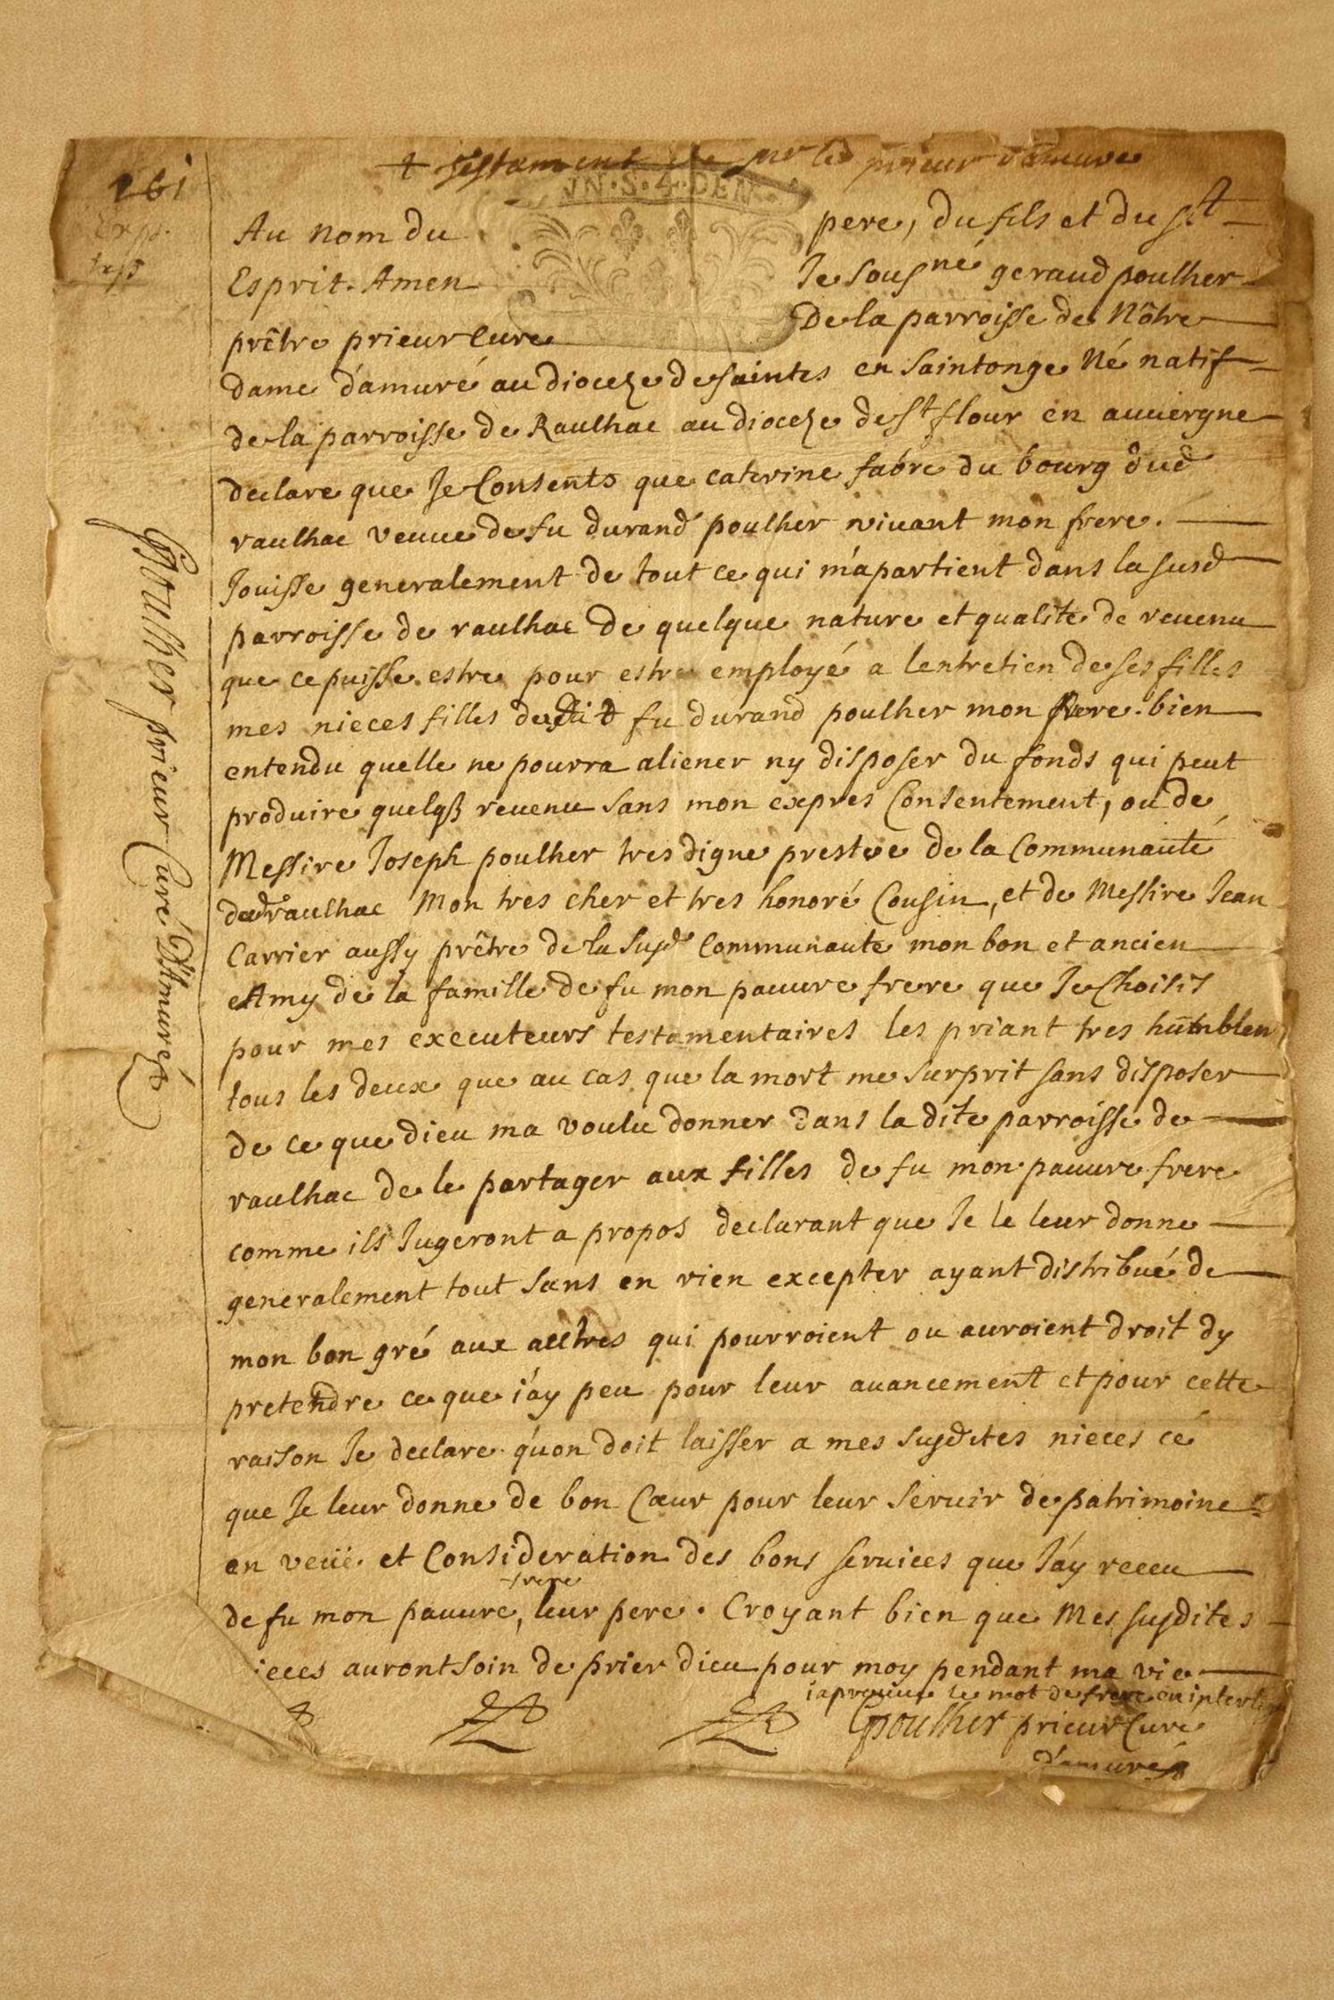 161
+ testament de mr le prieur d'amuré
IN·S·4·DEN·
Au nom du pere, du fils et du st
Esprit. Amen Je sousné geraud poulher
prêtre prieur Cure De la parroisse de Nôtre
dame d'amuré au dioceze de saintes en saintonge Né natif
de la parroisse de Raulhac au dioceze de st flour en auuergne
declare que Je Consents que caterine fabre du bourg dud
raulhac veuue de fu durand poulher viuant mon frere.
Jouisse generalement de tout ce qui m'apartient dans la susd
parroisse de raulhac de quelque nature et qualite de reuenu
que ce puisse estre pour estre employé a lentretien de ses filles
mes nieces filles dudit fu durand poulher mon frere. bien
entendu quelle ne pourra aliener ny disposer du fonds qui peut
produire quelqß reuenu sans mon expres Consentement, ou de
Messire Joseph poulher tres digne prestre de la Communauté
dud raulhac Mon tres cher et tres honoré Cousin, et de Messire Jean
Carrier aussy prêtre de la susde Communaute mon bon et ancien
Amy de la famille de fu mon pauure frere que Je Choisis
pour mes executeurs testamentaires les priant tres humblen
tous les deux que au cas que la mort me surprit sans disposer
de ce que dieu ma voulu donner dans la dite parroisse de
raulhac de le partager aux filles de fu mon pauure frere
comme ils Jugeront a propos declarant que Je le leur donne
generalement tout sans en rien excepter ayant distribué de
mon bon gré aux autres qui pourroient ou auroient droit dy
pretendre ce que j'ay peu pour leur auancement et pour cette
raison Je declare qu'on doit laisser a mes susdites nieces ce
que Je leur donne de bon Cœur pour leur seruir de patrimoine
en veüe et Consideration des bons seruices que J'ay receu
frere
de fu mon pauure, leur pere. Croyant bien que Mes susdites
ieces auront soin de prier dieu pour moy pendant ma vie
japrouue le mot de frere en interli
Gpoulher prieur Cure
d'amuré
Gpoulher prieur Curé D'Amuré